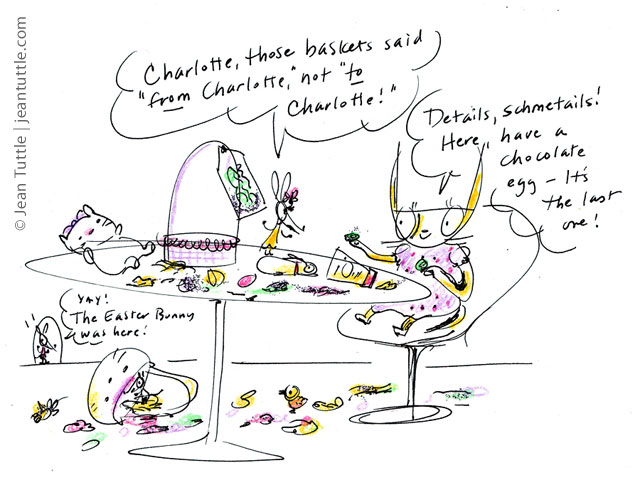 © Jean Tuttle | jeantuttle.com
Charlotte, those baskets said
"from Charlotte," not "to
Charlotte!"
Details, schmetails!
Here, have a
chocolate
egg – It's
the last
one!
Yay!
The Easter Bunny
was here!